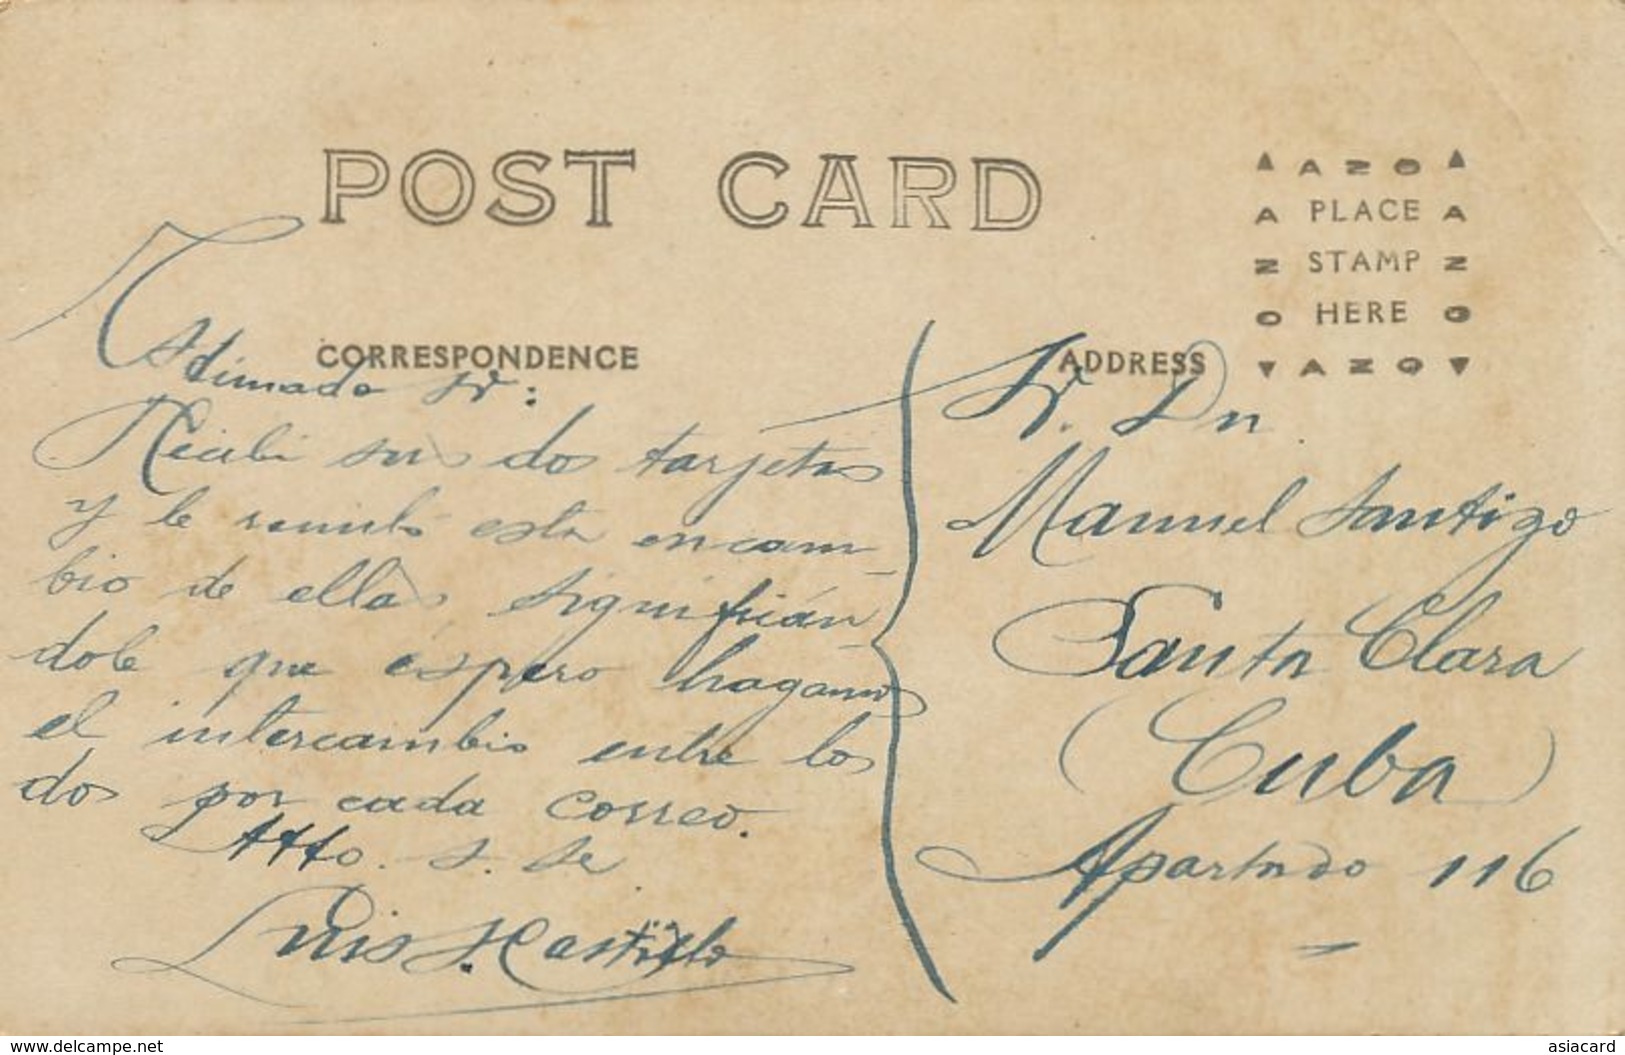 POST CARD
AZO
A PLACE A
Z STAMP Z
O HERE O
AZO
CORRESPONDENCE
ADDRESS
Estimado Sr:
Recibi sus dos tarjetas
y le remito esta en cam-
bio de ellas significán-
dole que espero hagamos
el intercambio entre los
dos por cada correo.
Atto. S. Se
Luis S. Castillo
Sr. Dn.
Manuel Santigo
Santa Clara
(Cuba)
Apartado 116
www.delcampe.net
asiacard